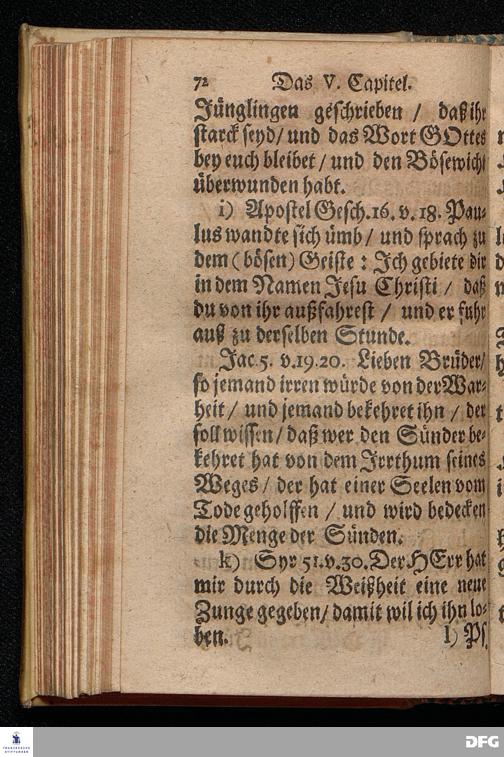 72 Das V. Capitel.
Jünglingen geschrieben / daß ihr
starck seyd / und das Wort GOttes
bey euch bleibet / und den Bösewicht
überwunden habt.
i) Apostel Gesch. 16. v. 18. Pau-
lus wandte sich ümb / und sprach zu
dem (bösen) Geiste : Ich gebiete dir
in dem Namen Jesu Christi / daß
du von ihr außfahrest / und er fuhr
auß zu derselben Stunde.
Jac. 5. v. 19. 20. Lieben Brüder /
so jemand irren würde von der War-
heit / und jemand bekehret ihn / der
soll wissen / daß wer den Sünder be-
kehret hat von dem Irrthum seines
Weges / der hat einer Seelen vom
Tode geholffen / und wird bedecken
die Menge der Sünden.
k) Syr 51. v. 30. Der HErr hat
mir durch die Weißheit eine neue
Zunge gegeben / damit wil ich ihn lo-
ben. l) Ps.
FRANCKESCHE
STIFTUNGEN
DFG